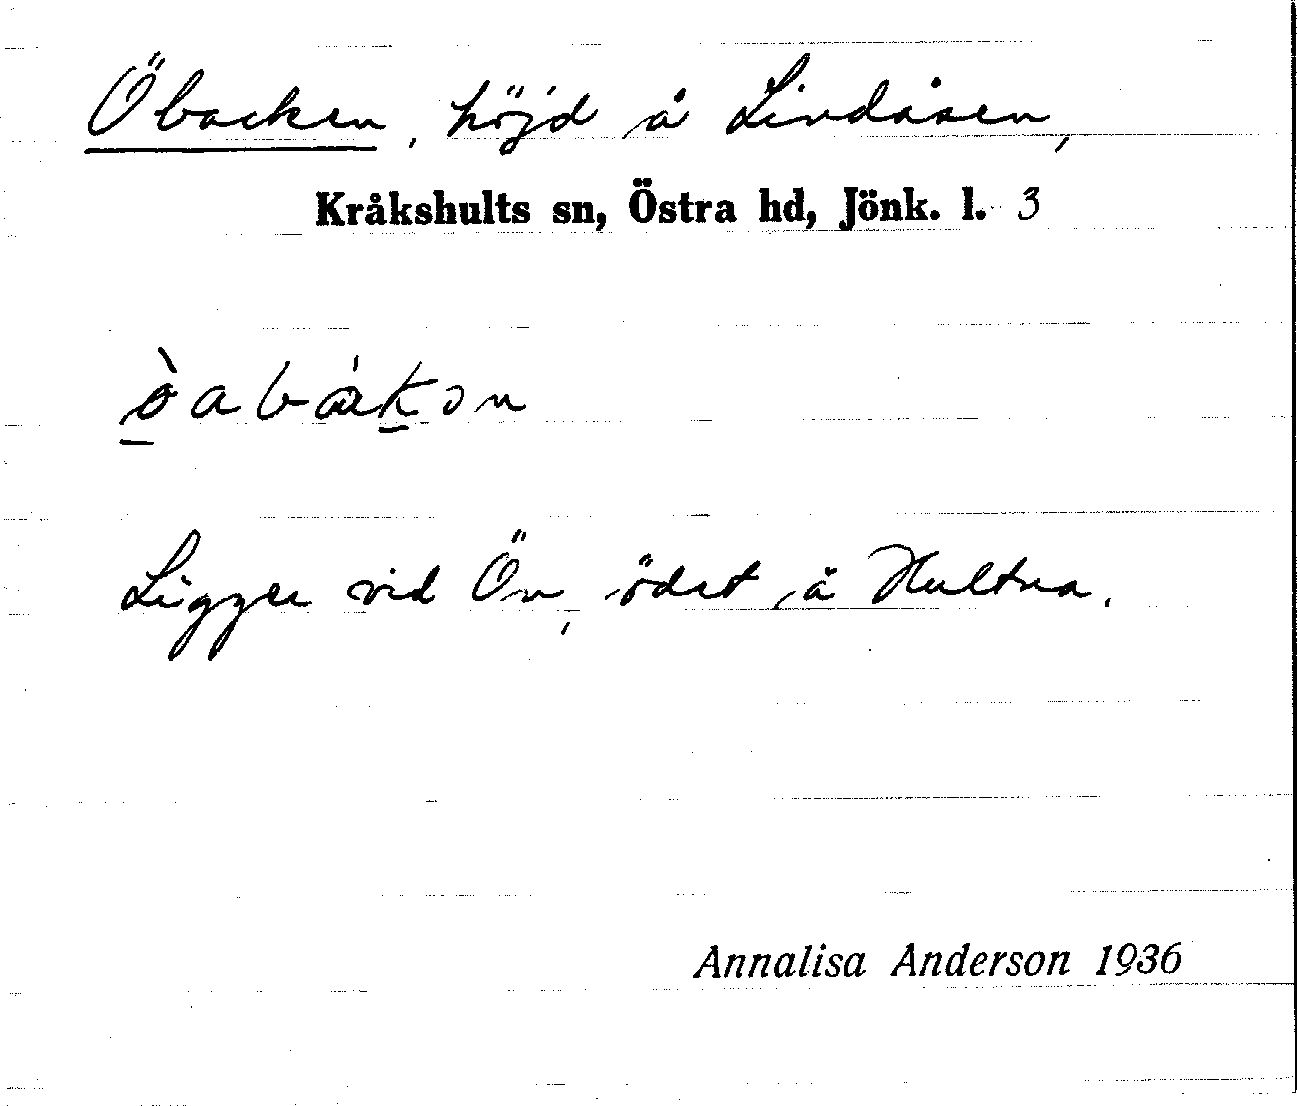 Öbacken, höjd å Lindåsen,
Kråkshults sn, Östra hd, Jönk. l. 3
Ligger vid Ön, ödet å Hultna.
Annalisa Anderson 1936